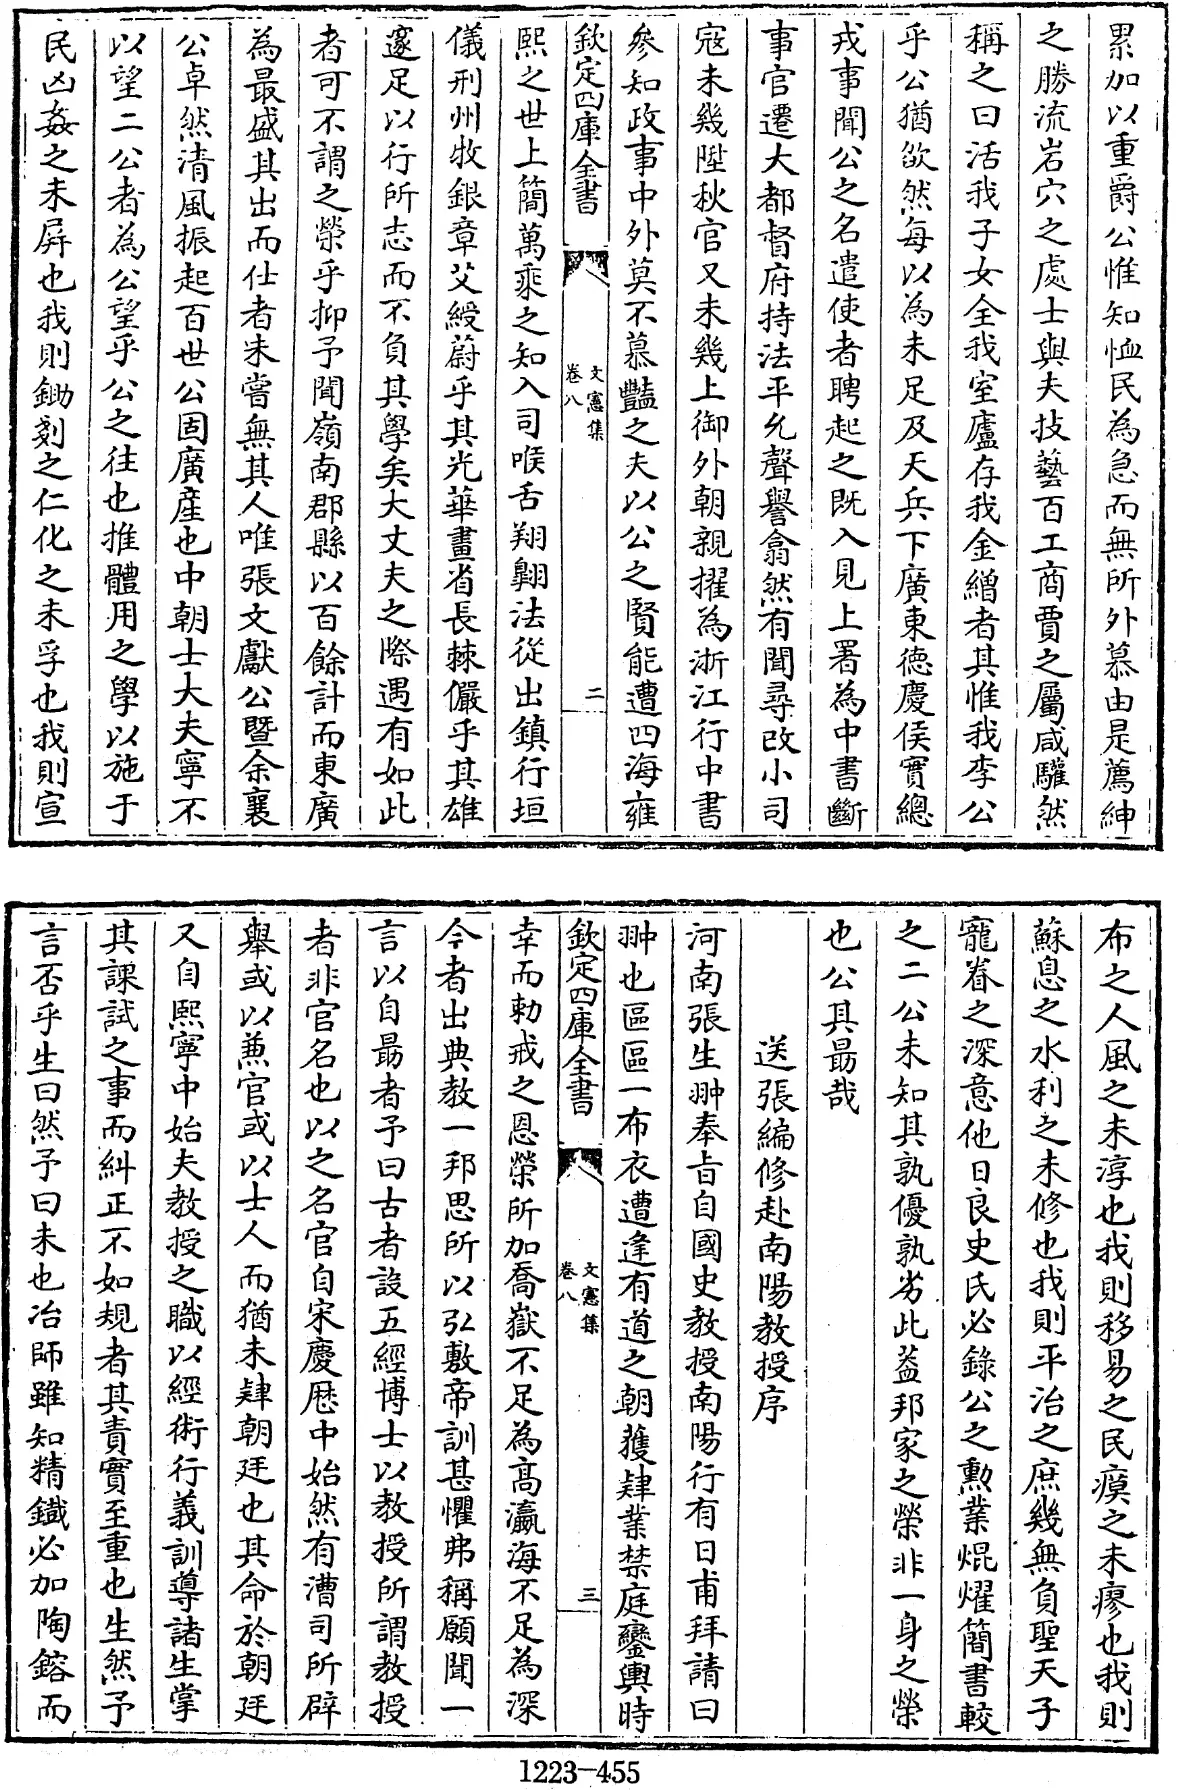 累加以重爵公惟知恤民為急而無所外慕由是薦紳
之勝流岩穴之處士與夫技藝百工商賈之屬咸驩然
稱之曰活我子女全我室廬存我金繒者其惟我李公
乎公猶欿然每以為未足及天兵下廣東德慶侯實總
戎事聞公之名遣使者聘起之既入見上署為中書斷
事官遷大都督府持法平允聲譽翕然有聞尋改小司
寇未幾陞秋官又未幾上御外朝親擢為浙江行中書
參知政事中外莫不慕豔之夫以公之賢能遭四海雍
欽定四庫全書 文憲集 卷八 二
熙之世上簡萬乘之知入司喉舌翔翺法從出鎮行垣
儀刑州牧銀章艾綬蔚乎其光華畫省長棘儼乎其雄
邃足以行所志而不負其學矣大丈夫之際遇有如此
者可不謂之榮乎抑予聞嶺南郡縣以百餘計而東廣
為最盛其出而仕者未嘗無其人唯張文獻公暨余襄
公卓然清風振起百世公固廣産也中朝士大夫寧不
以望二公者為公望乎公之往也推體用之學以施于
民凶姦之未屏也我則鋤剗之仁化之未孚也我則宣
布之人風之未淳也我則移易之民瘼之未瘳也我則
蘇息之水利之未修也我則平治之庶幾無負聖天子
寵眷之深意他日良史氏必錄公之勲業焜燿簡書較
之二公未知其孰優孰劣此葢邦家之榮非一身之榮
也公其勗哉
送張編修赴南陽教授序
河南張生翀奉旨自國史教授南陽行有日甫拜請曰
翀也區區一布衣遭逢有道之朝獲肄業禁庭鑾輿時
欽定四庫全書 文憲集 卷八 三
幸而勅戒之恩榮所加喬嶽不足為高瀛海不足為深
今者出典教一邦思所以弘敷帝訓甚懼弗稱願聞一
言以自勗者予曰古者設五經博士以教授所謂教授
者非官名也以之名官自宋慶厯中始然有漕司所辟
舉或以兼官或以士人而猶未肄朝廷也其命於朝廷
又自熙寧中始夫教授之職以經術行義訓導諸生掌
其課試之事而糾正不如規者其責實至重也生然予
言否乎生曰然予曰未也冶師雖知精鐵必加陶鎔而
1223-455